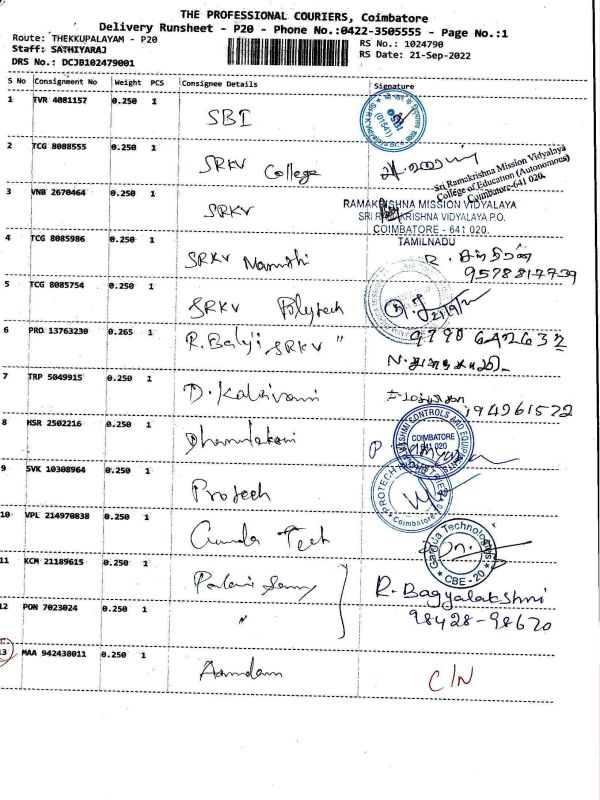 THE PROFESSIONAL COURIERS, Coimbatore
Delivery Runsheet - P20 - Phone No.:0422-3505555 - Page No.:1
Route: THEKKUPALAYAM - P20
Staff: SATHIYARAJ
RS No.: 1024790
DRS No.: DCJB102479001
RS Date: 21-Sep-2022
S No Consignment No Weight PCS Consignee Details Signature
1 TVR 4081157 0.250 1 SBI
2 TCG 8088555 0.250 1 SRKV College
Sri Ramakrishna Mission Vidyalaya
College of Education (Autonomous)
Coimbatore-641 020.
3 VNB 2670464 0.250 1 SRKV
RAMAKRISHNA MISSION VIDYALAYA
SRI RAMAKRISHNA VIDYALAYA P.O.
COIMBATORE - 641 020.
TAMILNADU
4 TCG 8085986 0.250 1 SRKV
9578817739
5 TCG 8085754 0.250 1 SRKV Polytech
6 PRO 13763230 0.265 1 R. SRKV "
7 TRP 5049915 0.250 1 D. Kalaivani
8 HSR 2502216 0.250 1
COIMBATORE
641 020
9 SVK 10308964 0.250 1 Protech
10 VPL 214970838 0.250 1 Tech
Garuda Technologies
CBE-20
11 KCM 21189615 0.250 1 Palani Samy R. Bagyalakshmi
12 PON 7023024 0.250 1 " 98428-98670
13 MAA 942438011 0.250 1 C/N